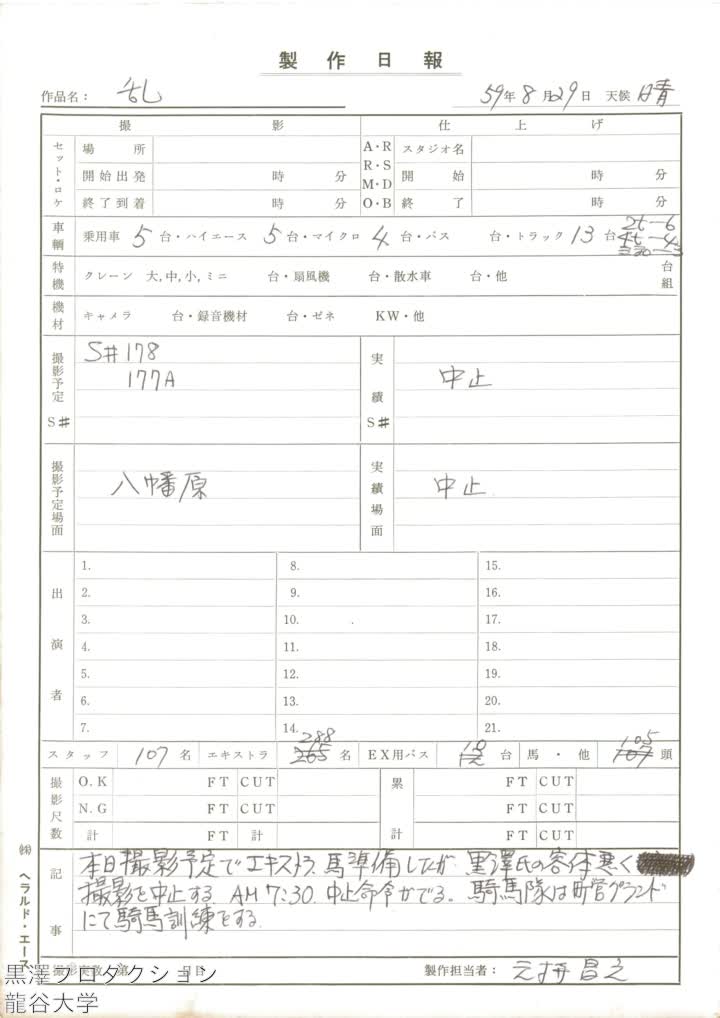 製作日報
作品名： 乱 59年8月29日 天候 晴
撮影 仕上げ
セット・ロケ 場所 A・R スタジオ名
開始出発 時 分 R・S M・D 開始 時 分
終了到着 時 分 O・B 終了 時 分
車輌 乗用車 5 台・ハイエース 5 台・マイクロ 4 台・バス 台・トラック 13 台 2t—6
4t—4
特機 クレーン 大,中,小,ミニ 台・扇風機 台・散水車 台・他 台組
機材 キャメラ 台・録音機材 台・ゼネ KW・他
撮影予定 S# S#178 実績 S# 中止
177A
撮影予定場面 八幡原 実績場面 中止
出演者 1. 8. 15.
2. 9. 16.
3. 10. 17.
4. 11. 18.
5. 12. 19.
6. 13. 20.
7. 14. 21.
スタッフ 107 名 エキストラ 288 265 名 EX用バス 10 台 馬・他 105 107 頭
撮影尺数 O.K FT CUT 累計 FT CUT
N.G FT CUT FT CUT
計 FT 計 FT CUT
記事 本日撮影予定でエキストラ、馬準備したが 黒澤氏の容体悪く
撮影を中止する。AM 7:30 中止命令がでる。騎馬隊は町営グランド
にて騎馬訓練をする
撮影実数 第 日目 製作担当者：
㈱ ヘラルド・エース
黒澤プロダクション
龍谷大学